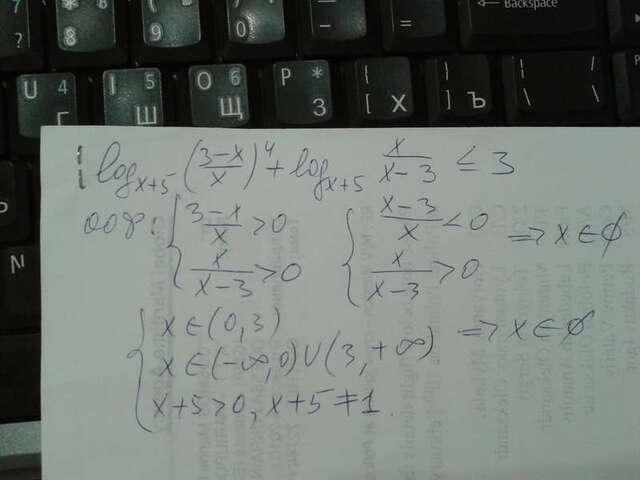 7 8 9 0 - = Backspace
?
U 4 Г I 5 Ш O 6 Щ P * З { [ Х } ] Ъ | \ / \
N
1 log_{x+5} ((3-x)/x)^4 + log_{x+5} x/(x-3) ≤ 3
оор: { (3-x)/x > 0 { (x-3)/x < 0 => x ∈ ∅
x/(x-3) > 0 x/(x-3) > 0
{ x ∈ (0, 3) => x ∈ ∅
x ∈ (-∞, 0) ∪ (3, +∞)
x+5 > 0, x+5 ≠ 1.